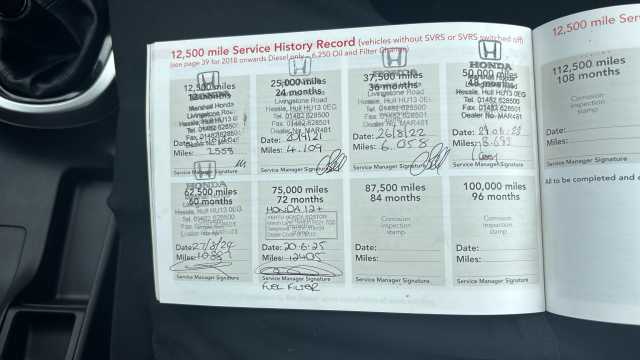 12,500 mile Service History Record (vehicles without SVRS or SVRS switched off)
(see page 39 for 2018 onwards Diesel only – 6,250 Oil and Filter Change)
12,500 miles
Marshall Honda
Livingstone Road
Hessle, Hull HU13 0
Tel: 01482 628500
Fax: 01482 628501
Date:
Miles: 2558
Service Manager Signature
25,000 miles
24 months
Livingstone Road
Hessle, Hull HU13 0EG
Tel: 01482 628500
Fax: 01482 628501
Dealer No: MAR481
Date: 21/9/21
Miles: 4.109
Service Manager Signature
37,500 miles
36 months
Livingstone Road
Hessle, Hull HU13 0EG
Tel: 01482 628500
Fax: 01482 628501
Dealer No: MAR481
Date: 26/8/22
Miles: 6.058
Service Manager Signature
HONDA
50,000 miles
48 months
Marshall Honda
Livingstone Road
Hessle, Hull HU13 0EG
Tel: 01482 628500
Fax: 01482 628501
Dealer No: MAR481
Date:
Miles:
Service Manager Signature
HONDA
62,500 miles
60 months
Hessle, Hull HU13 0EG
Tel: 01482 628500
Fax: 01482 628501
Dealer No: MAR481
Date:
Miles:
Service Manager Signature
75,000 miles
72 months
HONDA 12+
Date: 20.6.25
Miles: 12405
Service Manager Signature
FUEL FILTER
87,500 miles
84 months
Corrosion
inspection
stamp
Date:
Miles:
Service Manager Signature
100,000 miles
96 months
Corrosion
inspection
stamp
Date:
Miles:
Service Manager Signature
12,500 mile Ser
112,500 miles
108 months
Corrosion
inspection
stamp
Date:
Miles:
Service Manager Signature
All to be completed and